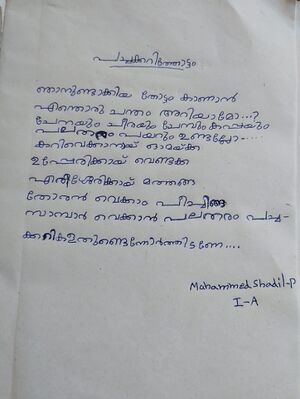 പച്ചക്കറിത്തോട്ടം
ഞാനുണ്ടാക്കിയ തോട്ടം കാണാൻ
എന്തൊരു ചന്തം അറിയാമോ...?
ചേനയും ചീരയും ചേമ്പും കപ്പയും
പലതരം പയറും ഉണ്ടല്ലോ-...
കറിവെക്കാനുണ്ട് ഓമയ്ക്ക
ഉപ്പേരിക്കായ് വെണ്ടക്ക
എരിശ്ശേരിക്കായ് മത്തങ്ങ
തോരൻ വെക്കാം പീച്ചിങ്ങ
സാമ്പാർ വെക്കാൻ പലതരം പച്ച-
ക്കറികളതുണ്ടെന്നോർത്തിടണേ....
Mohammed Shadil-P
I-A